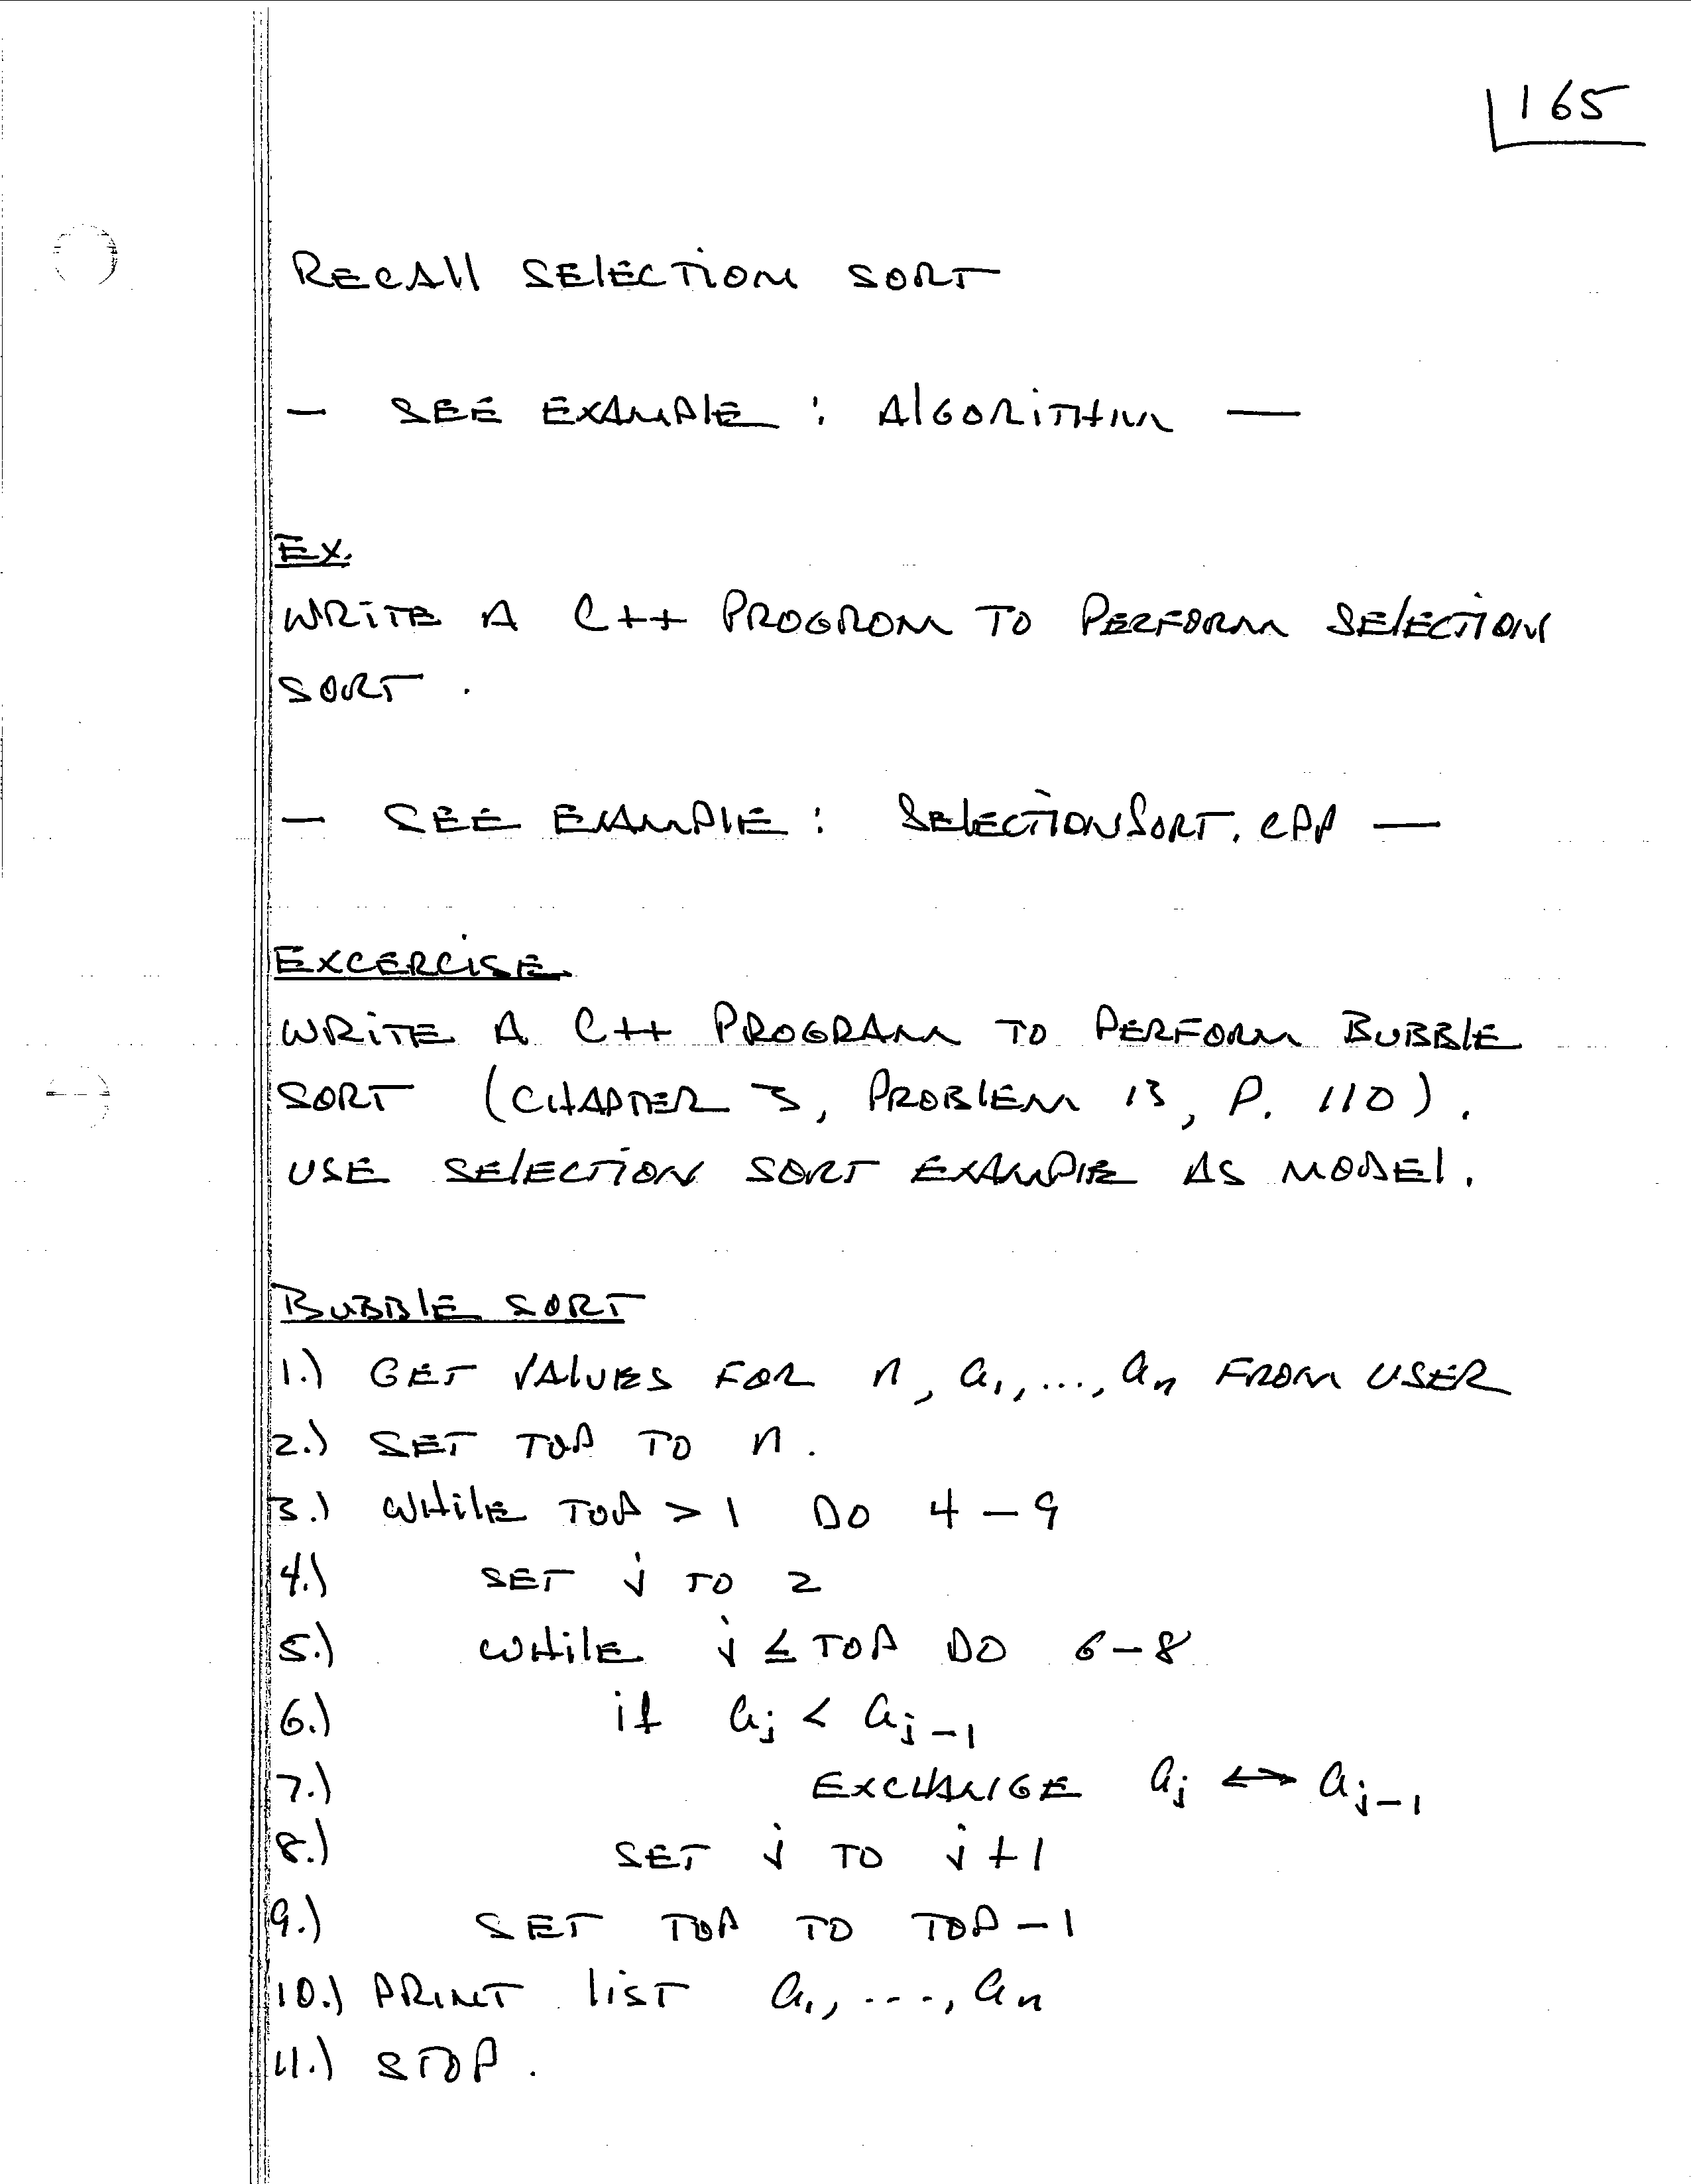 165
RECALL SELECTION SORT
— SEE EXAMPLE : ALGORITHM —
EX.
WRITE A C++ PROGROM TO PERFORM SELECTION
SORT .
— SEE EXAMPLE : SELECTIONSORT.CPP —
EXCERCISE
WRITE A C++ PROGRAM TO PERFORM BUBBLE
SORT (CHAPTER 3, PROBLEM 13, P. 110).
USE SELECTION SORT EXAMPLE AS MODEL.
BUBBLE SORT
1.) GET VALUES FOR n, a₁, ..., aₙ FROM USER
2.) SET TOP TO n.
3.) WHILE TOP > 1 DO 4 – 9
4.) SET j TO 2
5.) WHILE j ≤ TOP DO 6 – 8
6.) if aⱼ < aⱼ₋₁
7.) EXCHANGE aⱼ ↔ aⱼ₋₁
8.) SET j TO j + 1
9.) SET TOP TO TOP – 1
10.) PRINT LIST a₁, ...., aₙ
11.) STOP .